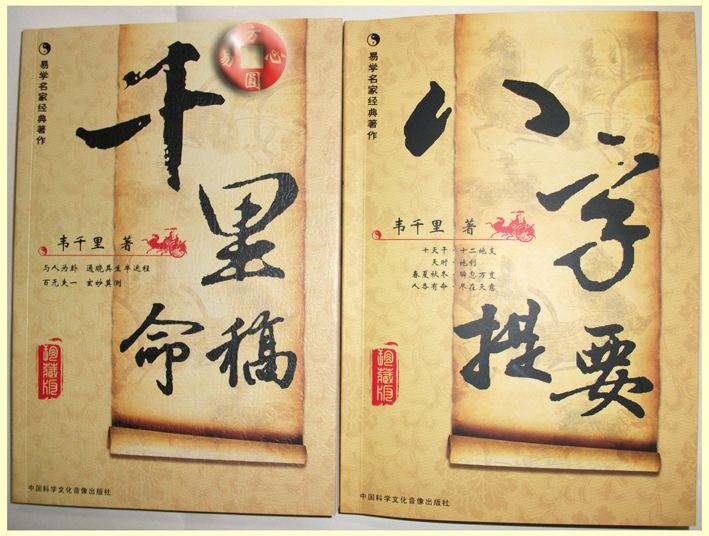 易学名家经典著作
方
易 心
圓
千
里
命稿
韦千里 著
与人为卦 通晓其生平运程
百无失一 玄妙莫测
珍藏版
中国科学文化音像出版社
易学名家经典著作
八
字
提要
韦千里 著
十天干·十二地支
天时·地利
春夏秋冬·瞬息万变
人各有命·尽在天意
珍藏版
中国科学文化音像出版社